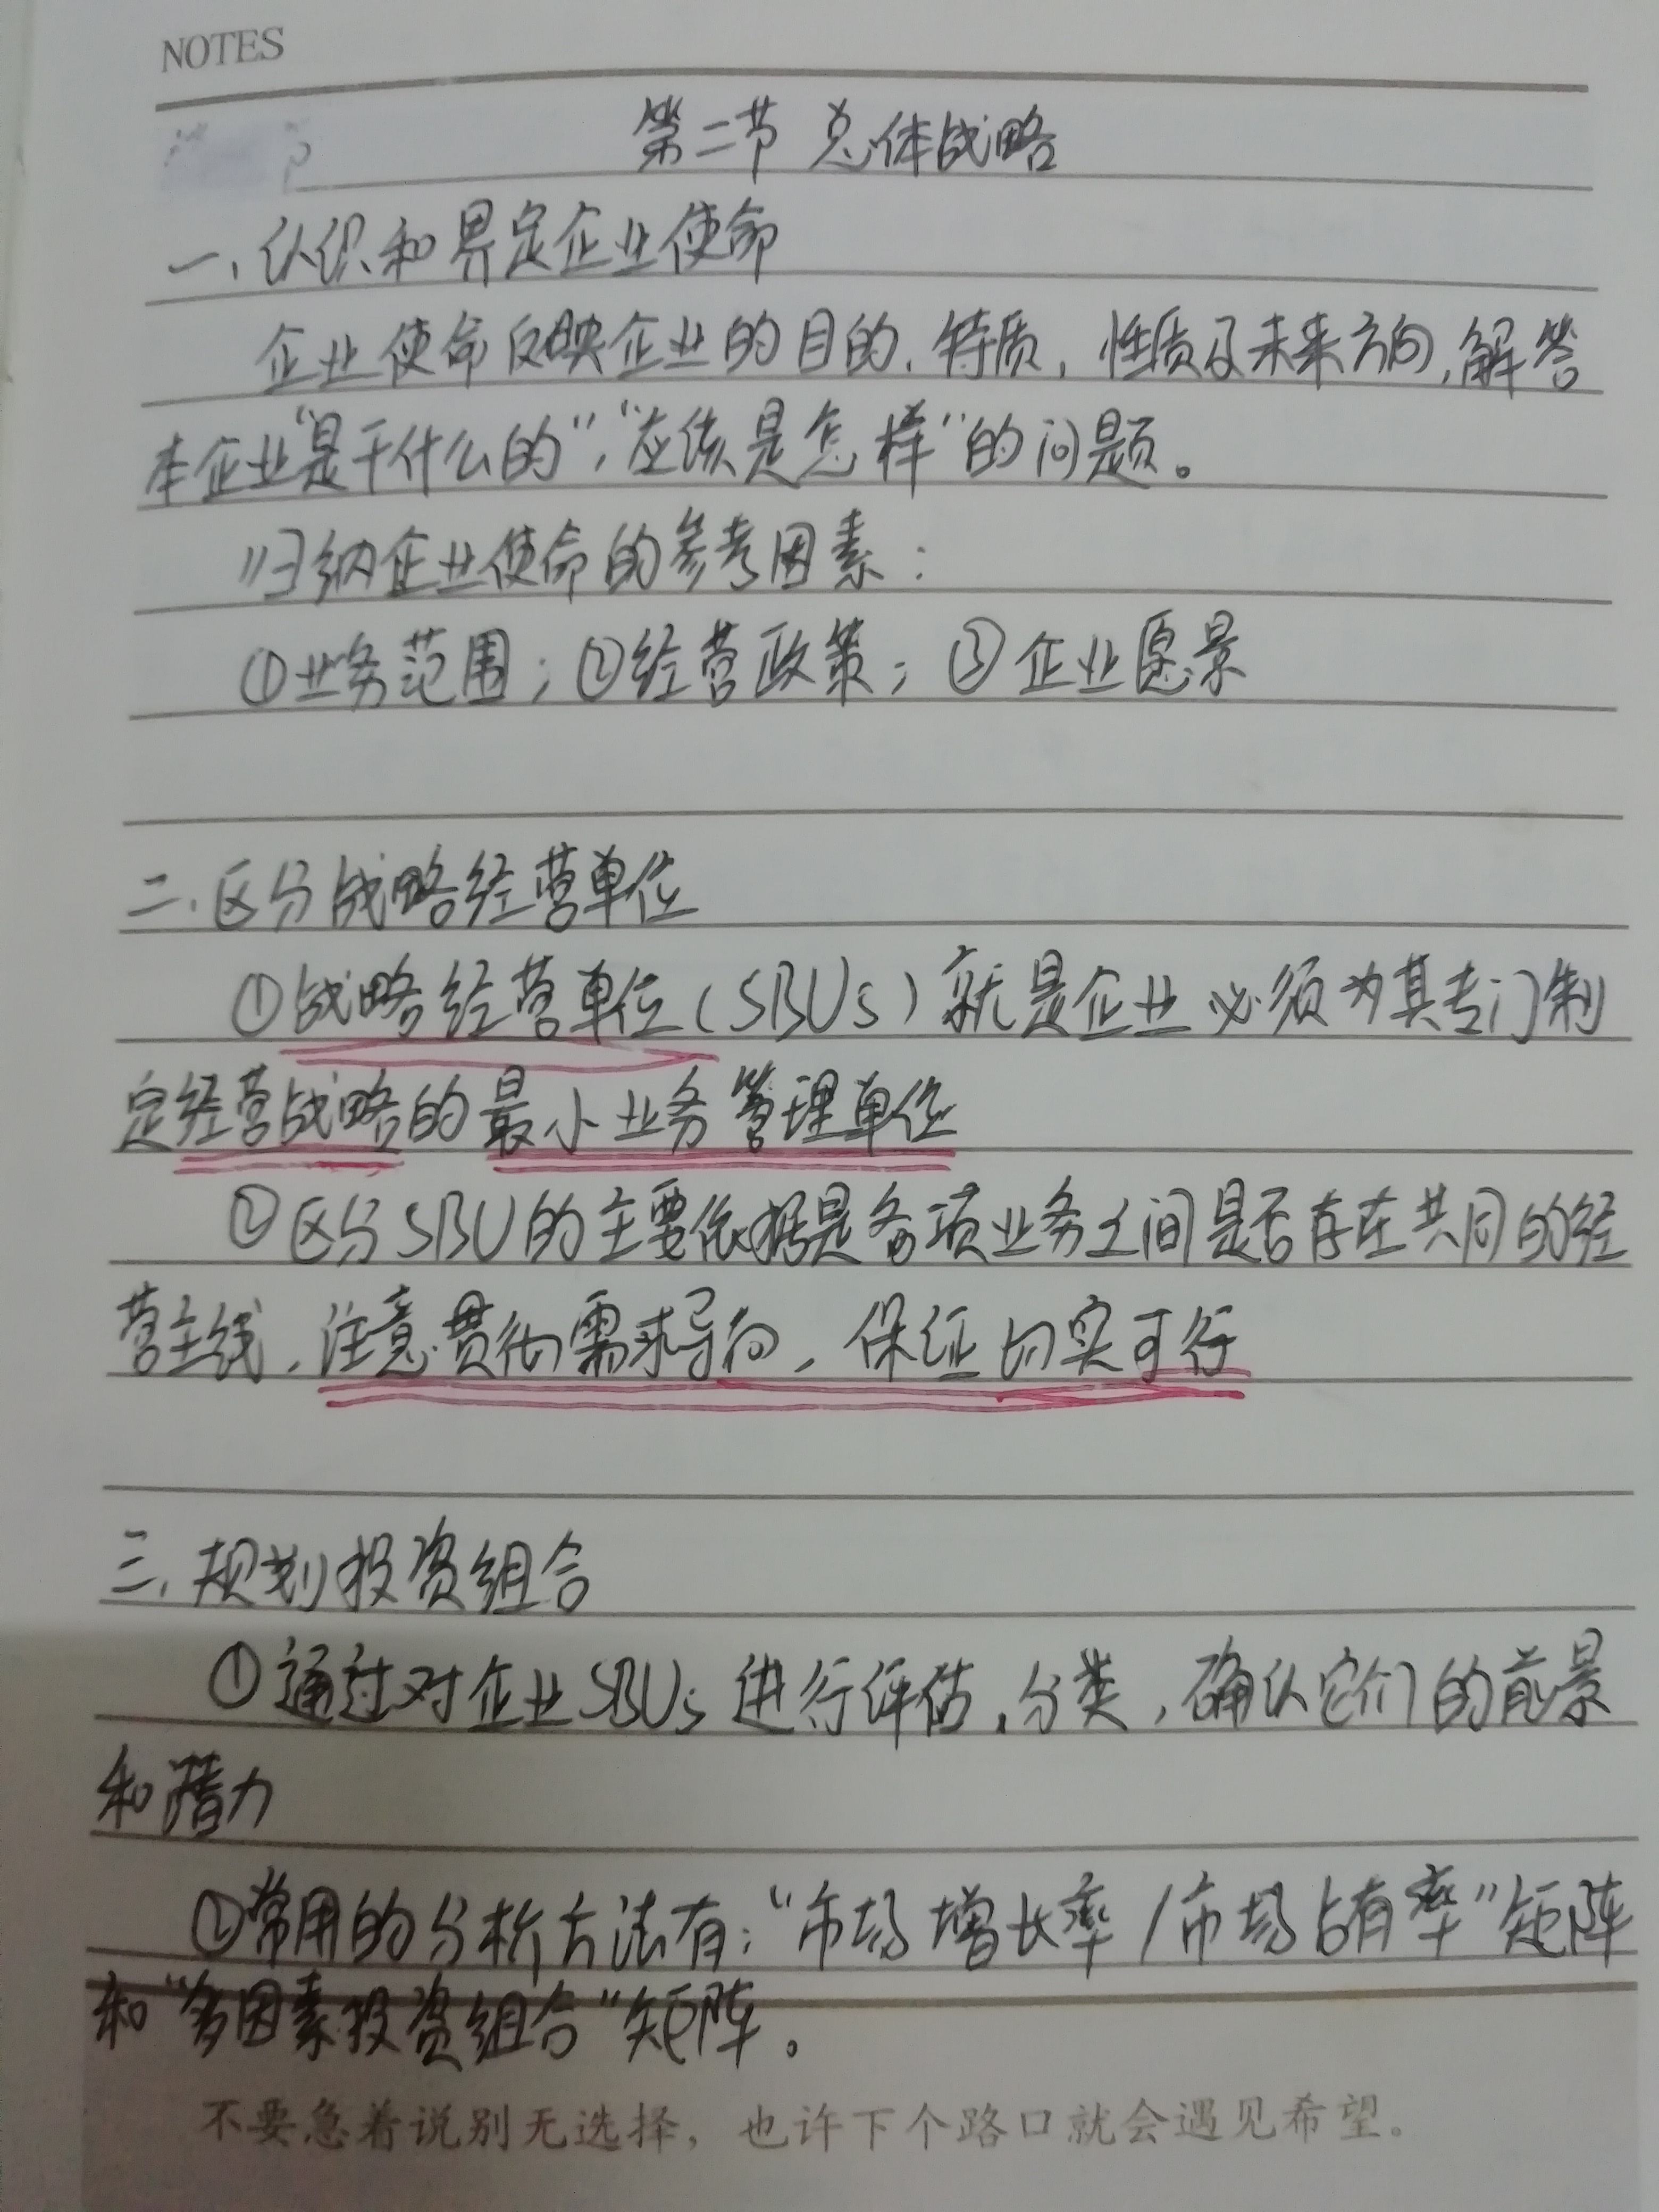 NOTES
第二节 总体战略
一、认识和界定企业使命
企业使命反映企业的目的、特质、性质及未来方向,解答
本企业“是干什么的”,“应该是怎样”的问题。
归纳企业使命的参考因素:
①业务范围;②经营政策;③企业愿景
二、区分战略经营单位
①战略经营单位(SBUs)就是企业必须为其专门制
定经营战略的最小业务管理单位
②区分SBU的主要依据是各项业务之间是否存在共同的经
营主线,注意贯彻需求导向,保证切实可行
三、规划投资组合
①通过对企业SBUs进行评估、分类,确认它们的前景
和潜力
②常用的分析方法有:“市场增长率/市场占有率”矩阵
和“多因素投资组合”矩阵。
不要急着说别无选择,也许下个路口就会遇见希望。